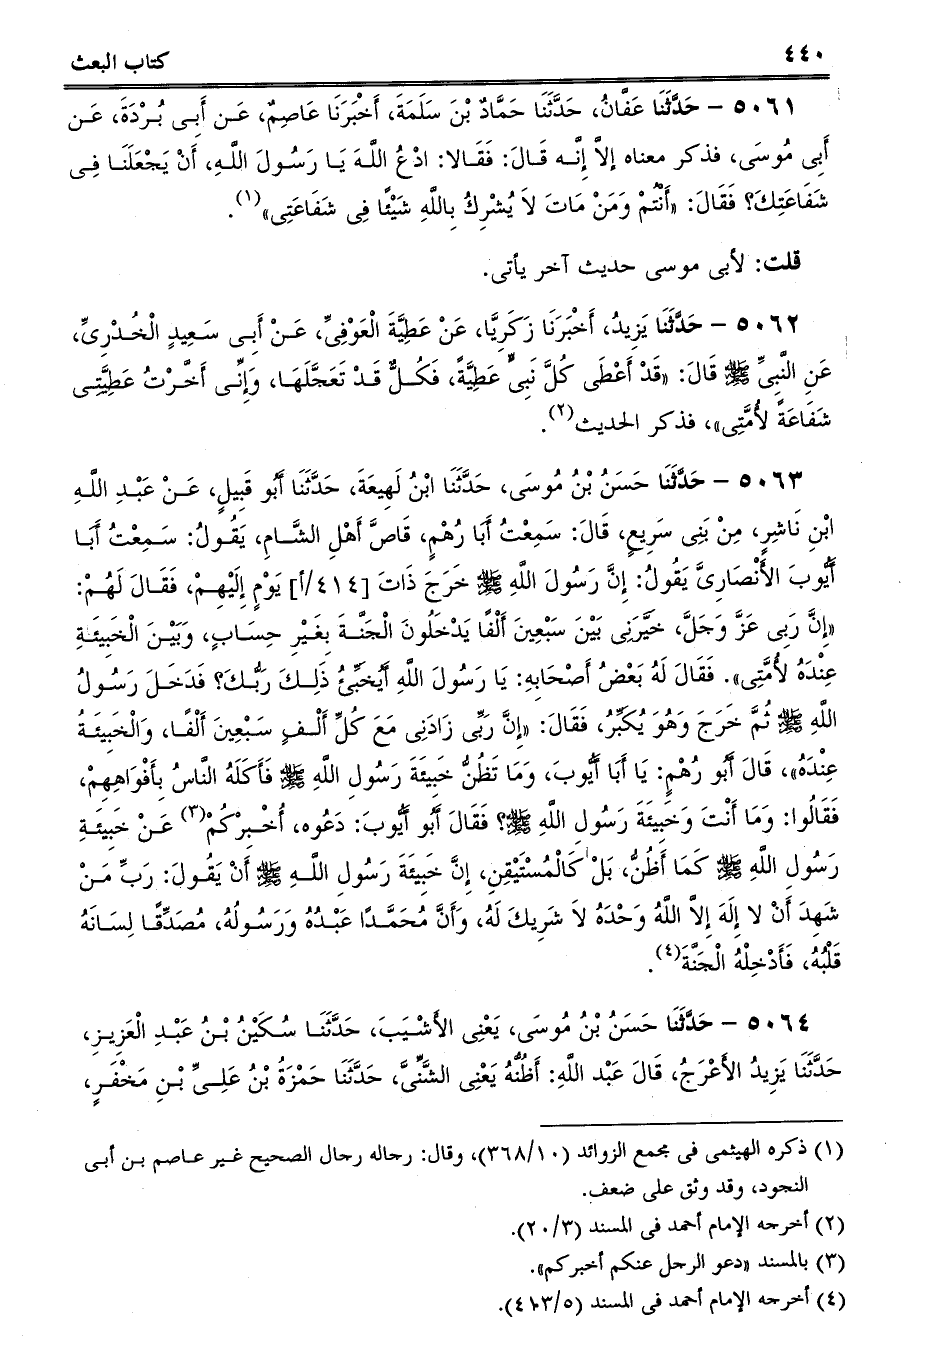 ٤٤٠ كتاب البعث
٥٠٦١ – حَدَّثَنَا عَفَّانُ، حَدَّثَنَا حَمَّادُ بْنَ سَلَمَةَ، أَخْبَرَنَا عَاصِمٌ، عَن أَبِى بُرْدَةَ، عَن
أَبِى مُوسَى، فذكر معناه إلاَّ إِنَّه قَالَ: فَقَالا: ادْعُ اللَّهَ يَا رَسُولَ اللَّهِ، أَنْ يَجْعَلَنَا فِى
شَفَاعَتِكَ؟ فَقَالَ: «أَنْتُمْ وَمَنْ مَاتَ لاَ يُشْرِكُ بِاللَّهِ شَيْئًا فِى شَفَاعَتِى»(١).
قلت: لأبى موسى حديث آخر يأتى.
٥٠٦٢ – حَدَّثَنَا يَزِيدُ، أَخْبَرَنَا زَكَرِيَّا، عَنْ عَطِيَّةَ الْعَوْفِىِّ، عَنْ أَبِى سَعِيدٍ الْخُدْرِىِّ،
عَنِ النَّبِىِّ ﷺ قَالَ: «قَدْ أَعْطَى كُلَّ نَبِىٍّ عَطِيَّةً، فَكُلٌّ قَدْ تَعَجَّلَهَا، وَإِنِّى أَخَّرْتُ عَطِيَّتِى
شَفَاعَةً لأُمَّتِى»، فذكر الحديث(٢).
٥٠٦٣ – حَدَّثَنَا حَسَنُ بْنُ مُوسَى، حَدَّثَنَا ابْنُ لَهِيعَةَ، حَدَّثَنَا أَبُو قَبِيلٍ، عَنْ عَبْدِ اللَّهِ
ابْنِ نَاشِرٍ، مِنْ بَنِى سَرِيعٍ، قَالَ: سَمِعْتُ أَبَا رُهْمٍ، قَاصَّ أَهْلِ الشَّامِ، يَقُولُ: سَمِعْتُ أَبَا
أَيُّوبَ الأَنْصَارِىَّ يَقُولُ: إِنَّ رَسُولَ اللَّهِ ﷺ خَرَجَ ذَاتَ [٤١٤/أ] يَوْمٍ إِلَيْهِمْ، فَقَالَ لَهُمْ:
«إِنَّ رَبِى عَزَّ وَجَلَّ، خَيَّرَنِى بَيْنَ سَبْعِينَ أَلْفًا يَدْخُلُونَ الجَنَّةَ بِغَيْرِ حِسَابٍ، وَبَيْنَ الْخَبِيئَةِ
عِنْدَهُ لأُمَّتِى». فَقَالَ لَهُ بَعْضُ أَصْحَابِهِ: يَا رَسُولَ اللَّهِ أَيُخَبِّئُ ذَلِكَ رَبُّكَ؟ فَدَخَلَ رَسُولُ
اللَّهِ ﷺ ثُمَّ خَرَجَ وَهُوَ يُكَبِّرُ، فَقَالَ: «إِنَّ رَبِّى زَادَنِى مَعَ كُلِّ أَلْفٍ سَبْعِينَ أَلْفًا، وَالْخَبِيئَةُ
عِنْدَهُ»، قَالَ أَبُو رُهْمٍ: يَا أَبَا أَيُّوبَ، وَمَا تَظُنُّ خَبِيئَةَ رَسُولِ اللَّهِ ﷺ فَأَكَلَهُ النَّاسُ بِأَفْوَاهِهِمْ،
فَقَالُوا: وَمَا أَنْتَ وَخَبِيئَةَ رَسُولِ اللَّهِ ﷺ؟ فَقَالَ أَبُو أَيُّوبَ: دَعُوه، أُخْبِرْكُمْ(٣) عَنْ خَبِيئَةِ
رَسُولِ اللَّهِ ﷺ كَمَا أَظُنُّ، بَلْ كَالْمُسْتَيْقِنِ، إِنَّ خَبِيئَةَ رَسُولِ اللَّهِ ﷺ أَنْ يَقُولَ: رَبِّ مَنْ
شَهِدَ أَنْ لا إِلَهَ إِلاَّ اللَّهُ وَحْدَهُ لاَ شَرِيكَ لَهُ، وَأَنَّ مُحَمَّدًا عَبْدُهُ وَرَسُولُهُ، مُصَدِّقًا لِسَانَهُ
قَلْبُهُ، فَأَدْخِلْهُ الْجَنَّةَ(٤).
٥٠٦٤ – حَدَّثَنَا حَسَنُ بْنُ مُوسَى، يَعْنِى الأَشْيَبَ، حَدَّثَنَا سُكَيْنُ بْنُ عَبْدِ الْعَزِيزِ،
حَدَّثَنَا يَزِيدُ الأَعْرَجُ، قَالَ عَبْد اللَّهِ: أَظُنُّهُ يَعْنِى الشَّنِّىَّ، حَدَّثَنَا حَمْزَةُ بْنُ عَلِىِّ بْنِ مَخْفَرٍ،
(١) ذكره الهيثمى فى مجمع الزوائد (٣٦٨/١٠)، وقال: رجاله رجال الصحيح غير عاصم بن أبى
النجود، وقد وثق على ضعف.
(٢) أخرجه الإمام أحمد فى المسند (٢٠/٣).
(٣) بالمسند «دعو الرجل عنكم أخبركم».
(٤) أخرجه الإمام أحمد فى المسند (٤١٣/٥).